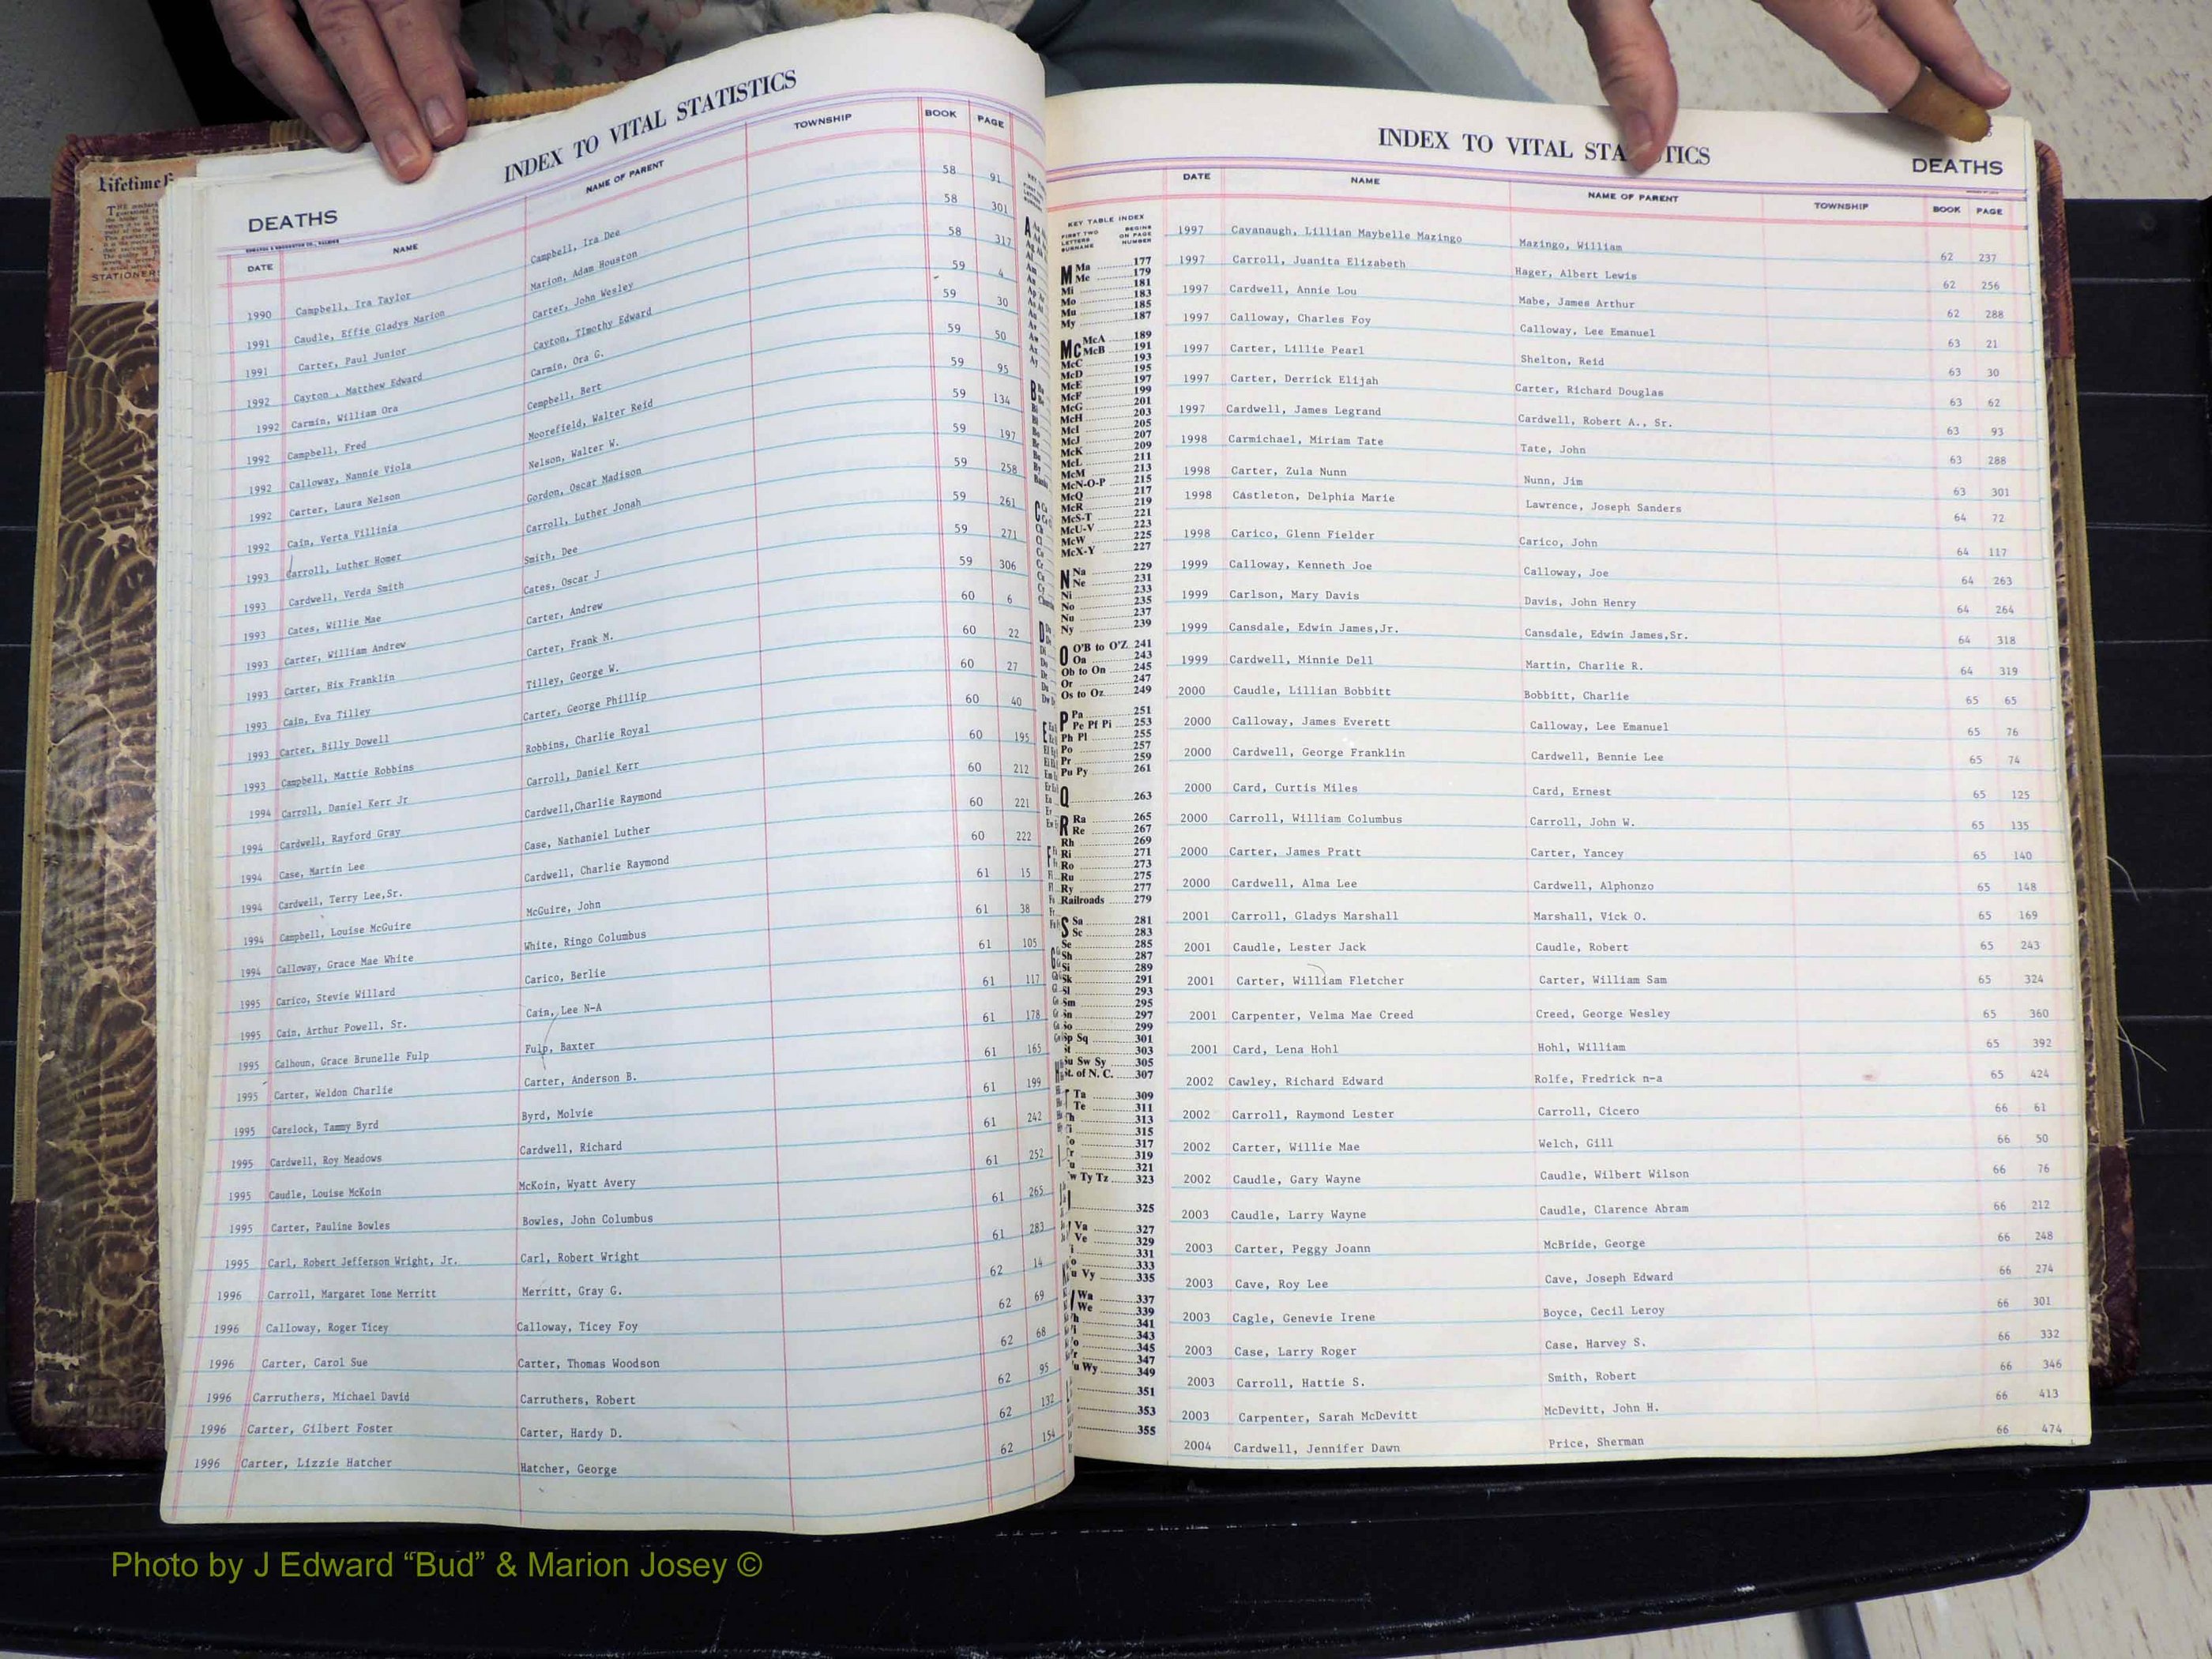 Lifetime
STATIONERS
INDEX TO VITAL STATISTICS
DEATHS
DATE NAME NAME OF PARENT TOWNSHIP BOOK PAGE
1990 Campbell, Ira Taylor Campbell, Ira Dee 58 91
1991 Caudle, Effie Gladys Marion Marion, Adam Houston 58 301
1991 Carter, Paul Junior Carter, John Wesley 58 317
1992 Cayton , Matthew Edward Cayton, TImothy Edward 59 4
1992 Carmin, William Ora Carmin, Ora G. 59 30
1992 Campbell, Fred Cempbell, Bert 59 50
1992 Calloway, Nannie Viola Moorefield, Walter Reid 59 95
1992 Carter, Laura Nelson Nelson, Walter W. 59 134
1992 Cain, Verta Villinia Gordon, Oscar Madison 59 197
1993 Carroll, Luther Homer Carroll, Luther Jonah 59 258
1993 Cardwell, Verda Smith Smith, Dee 59 261
1993 Cates, Willie Mae Cates, Oscar J 59 271
1993 Carter, William Andrew Carter, Andrew 59 306
1993 Carter, Hix Franklin Carter, Frank M. 60 6
1993 Cain, Eva Tilley Tilley, George W. 60 22
1993 Carter, Billy Dowell Carter, George Phillip 60 27
1993 Campbell, Mattie Robbins Robbins, Charlie Royal 60 40
1994 Carroll, Daniel Kerr Jr Carroll, Daniel Kerr 60 195
1994 Cardwell, Rayford Gray Cardwell,Charlie Raymond 60 212
1994 Case, Martin Lee Case, Nathaniel Luther 60 221
1994 Cardwell, Terry Lee,Sr. Cardwell, Charlie Raymond 60 222
1994 Campbell, Louise McGuire McGuire, John 61 15
1994 Calloway, Grace Mae White White, Ringo Columbus 61 38
1995 Carico, Stevie Willard Carico, Berlie 61 105
1995 Cain, Arthur Powell, Sr. Cain, Lee N-A 61 117
1995 Calhoun, Grace Brunelle Fulp Fulp, Baxter 61 178
1995 Carter, Weldon Charlie Carter, Anderson B. 61 165
1995 Carelock, Tammy Byrd Byrd, Molvie 61 199
1995 Cardwell, Roy Meadows Cardwell, Richard 61 242
1995 Caudle, Louise McKoin McKoin, Wyatt Avery 61 252
1995 Carter, Pauline Bowles Bowles, John Columbus 61 265
1995 Carl, Robert Jefferson Wright, Jr. Carl, Robert Wright 61 283
1996 Carroll, Margaret Ione Merritt Merritt, Gray G. 62 14
1996 Calloway, Roger Ticey Calloway, Ticey Foy 62 69
1996 Carter, Carol Sue Carter, Thomas Woodson 62 68
1996 Carruthers, Michael David Carruthers, Robert 62 95
1996 Carter, Gilbert Foster Carter, Hardy D. 62 132
1996 Carter, Lizzie Hatcher Hatcher, George 62 154
INDEX TO VITAL STA TICS
DEATHS
DATE NAME NAME OF PARENT TOWNSHIP BOOK PAGE
KEY TABLE INDEX
FIRST TWO LETTERS SURNAME BEGINS ON PAGE NUMBER
M Ma 177
Me 179
Mi 181
Mo 183
Mu 185
My 187
Mc McA 189
McB 191
McC 193
McD 195
McE 197
McF 199
McG 201
McH 203
McI 205
McJ 207
McK 209
McL 211
McM 213
McN-O-P 215
McQ 217
McR 219
McS-T 221
McU-V 223
McW 225
McX-Y 227
N Na 229
Ne 231
Ni 233
No 235
Nu 237
Ny 239
O O'B to O'Z 241
Oa 243
Ob to On 245
Or 247
Os to Oz 249
P Pa 251
Pe Pf Pi 253
Ph Pl 255
Po 257
Pr 259
Pu Py 261
Q 263
R Ra 265
Re 267
Rh 269
Ri 271
Ro 273
Ru 275
Ry 277
Railroads 279
S Sa 281
Sc 283
Se 285
Sh 287
Si 289
Sk 291
Sl 293
Sm 295
Sn 297
So 299
Sp Sq 301
St 303
Su Sw Sy 305
St. of N. C. 307
Ta 309
Te 311
313
315
317
319
321
Ty Tz 323
325
Va 327
Ve 329
331
333
Vy 335
Wa 337
We 339
341
343
345
347
Wy 349
351
353
355
1997 Cavanaugh, Lillian Maybelle Mazingo Mazingo, William 62 237
1997 Carroll, Juanita Elizabeth Hager, Albert Lewis 62 256
1997 Cardwell, Annie Lou Mabe, James Arthur 62 288
1997 Calloway, Charles Foy Calloway, Lee Emanuel 63 21
1997 Carter, Lillie Pearl Shelton, Reid 63 30
1997 Carter, Derrick Elijah Carter, Richard Douglas 63 62
1997 Cardwell, James Legrand Cardwell, Robert A., Sr. 63 93
1998 Carmichael, Miriam Tate Tate, John 63 288
1998 Carter, Zula Nunn Nunn, Jim 63 301
1998 Castleton, Delphia Marie Lawrence, Joseph Sanders 64 72
1998 Carico, Glenn Fielder Carico, John 64 117
1999 Calloway, Kenneth Joe Calloway, Joe 64 263
1999 Carlson, Mary Davis Davis, John Henry 64 264
1999 Cansdale, Edwin James,Jr. Cansdale, Edwin James,Sr. 64 318
1999 Cardwell, Minnie Dell Martin, Charlie R. 64 319
2000 Caudle, Lillian Bobbitt Bobbitt, Charlie 65 65
2000 Calloway, James Everett Calloway, Lee Emanuel 65 76
2000 Cardwell, George Franklin Cardwell, Bennie Lee 65 74
2000 Card, Curtis Miles Card, Ernest 65 125
2000 Carroll, William Columbus Carroll, John W. 65 135
2000 Carter, James Pratt Carter, Yancey 65 140
2000 Cardwell, Alma Lee Cardwell, Alphonzo 65 148
2001 Carroll, Gladys Marshall Marshall, Vick O. 65 169
2001 Caudle, Lester Jack Caudle, Robert 65 243
2001 Carter, William Fletcher Carter, William Sam 65 324
2001 Carpenter, Velma Mae Creed Creed, George Wesley 65 360
2001 Card, Lena Hohl Hohl, William 65 392
2002 Cawley, Richard Edward Rolfe, Fredrick n-a 65 424
2002 Carroll, Raymond Lester Carroll, Cicero 66 61
2002 Carter, Willie Mae Welch, Gill 66 50
2002 Caudle, Gary Wayne Caudle, Wilbert Wilson 66 76
2003 Caudle, Larry Wayne Caudle, Clarence Abram 66 212
2003 Carter, Peggy Joann McBride, George 66 248
2003 Cave, Roy Lee Cave, Joseph Edward 66 274
2003 Cagle, Genevie Irene Boyce, Cecil Leroy 66 301
2003 Case, Larry Roger Case, Harvey S. 66 332
2003 Carroll, Hattie S. Smith, Robert 66 346
2003 Carpenter, Sarah McDevitt McDevitt, John H. 66 413
2004 Cardwell, Jennifer Dawn Price, Sherman 66 474
Photo by J Edward “Bud” & Marion Josey ©